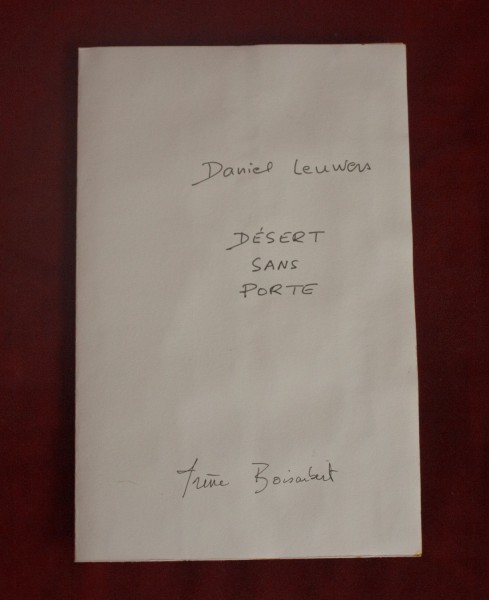 Daniel Leuwers
DÉSERT
SANS
PORTE
Irène Boisaubert